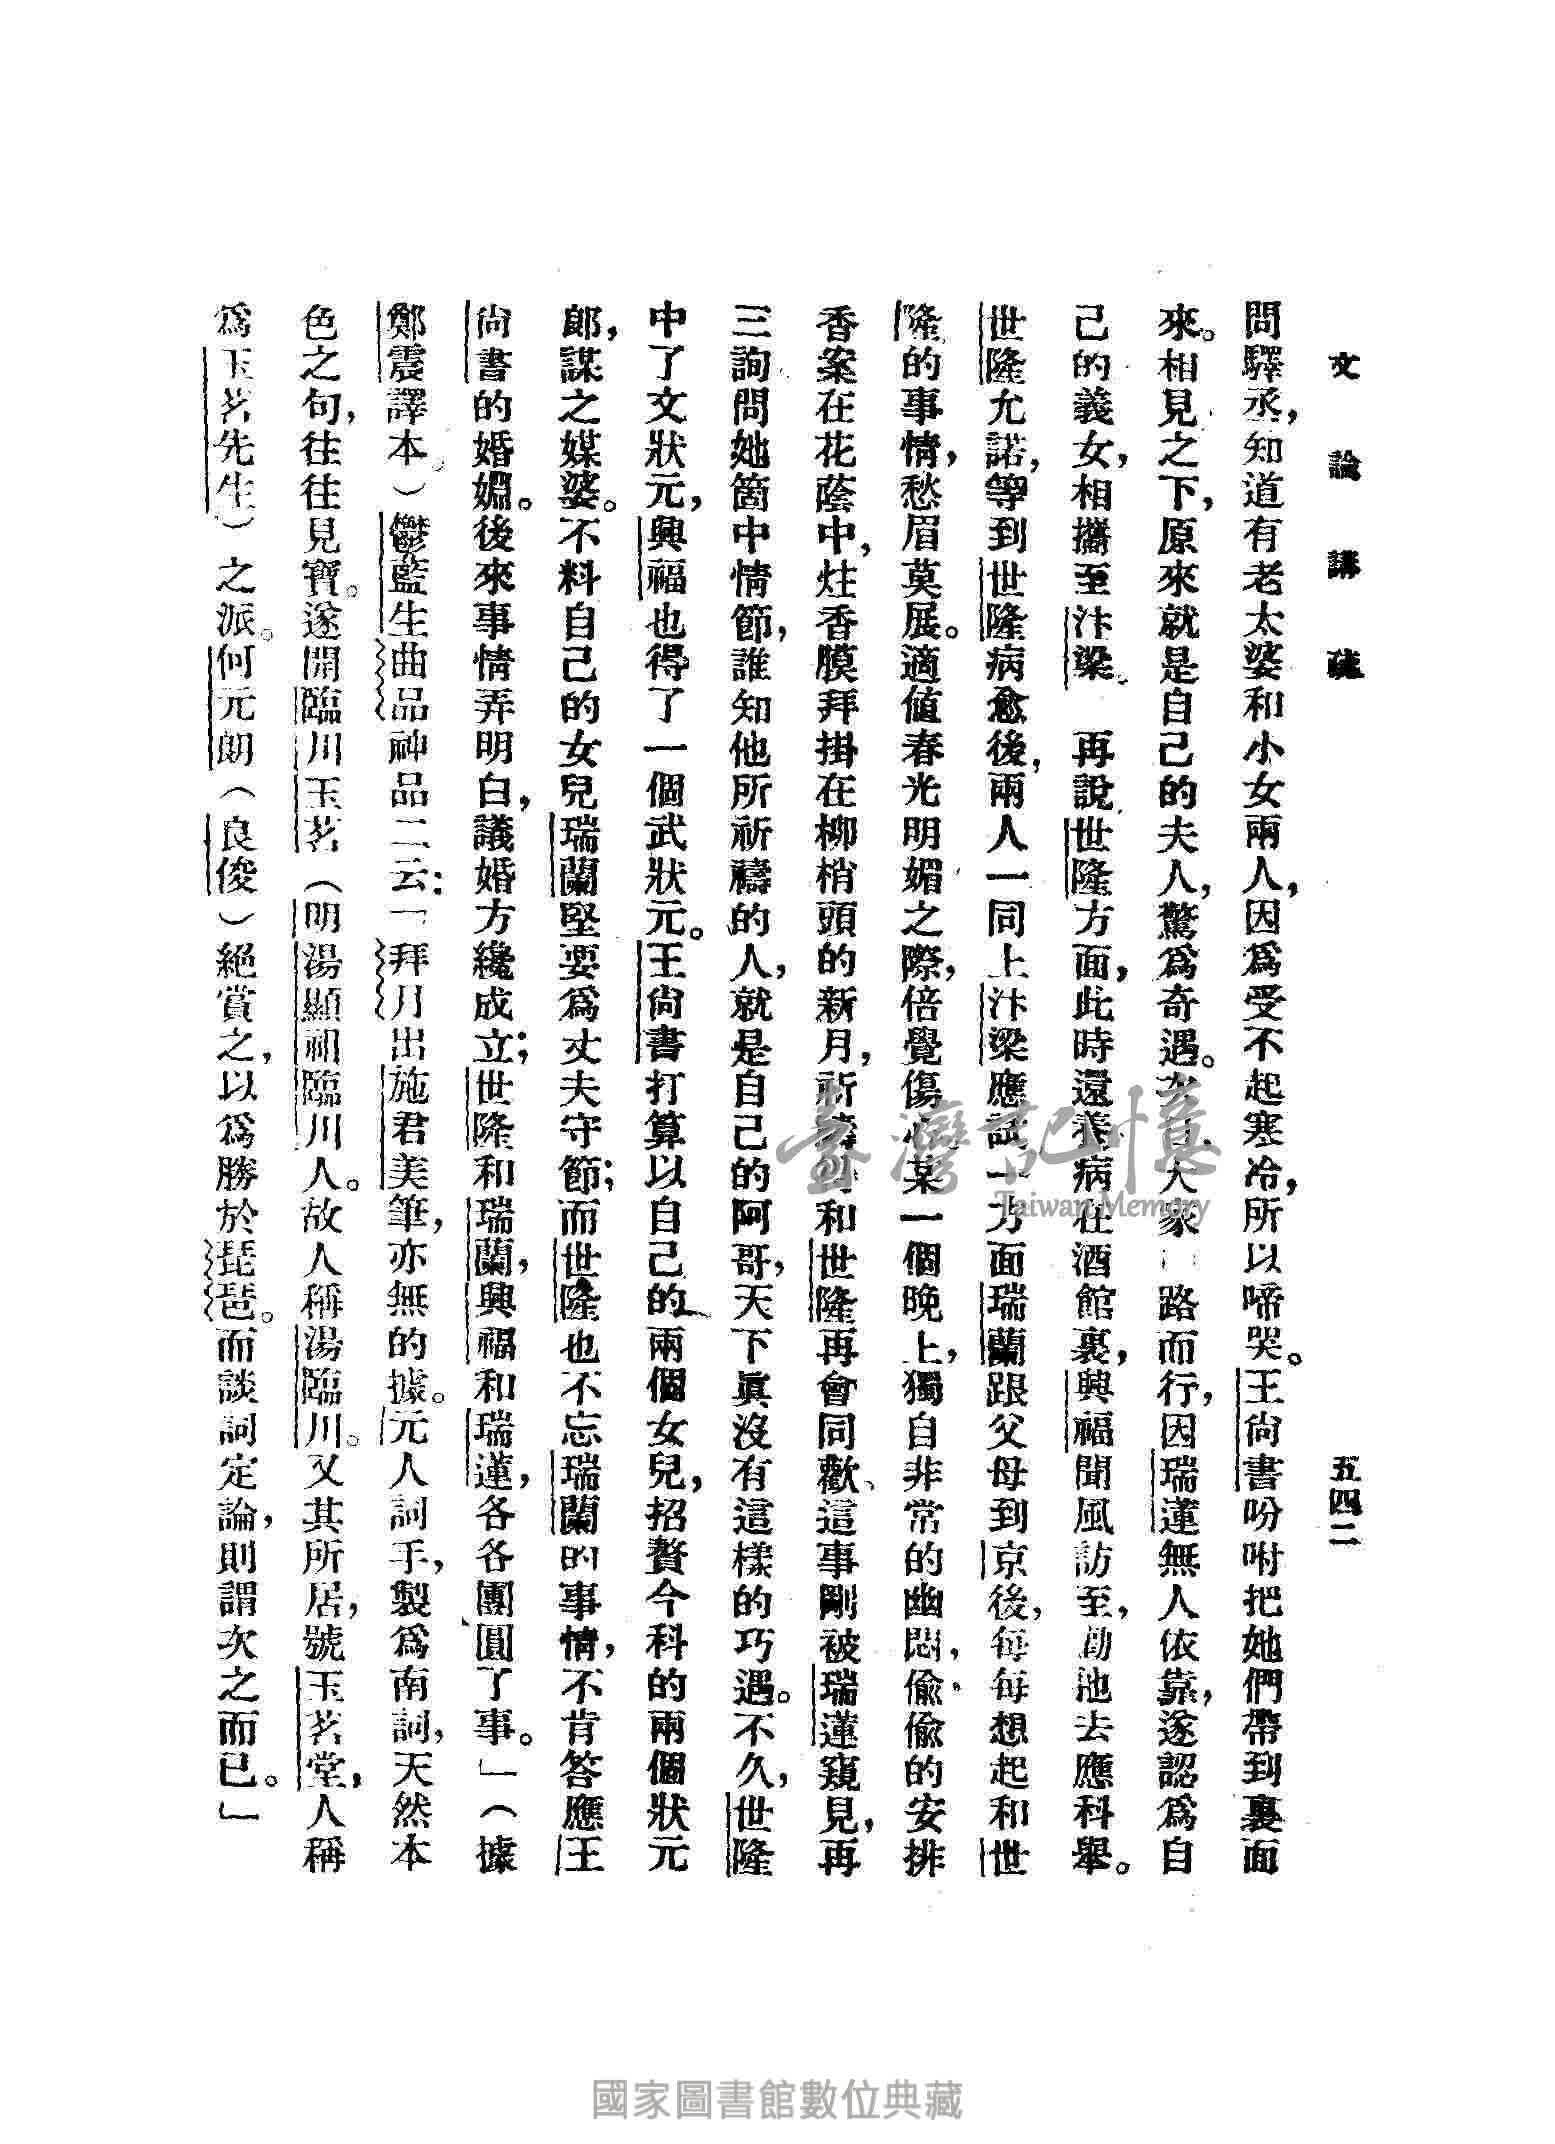 文論講疏
五四二
問驛丞，知道有老太婆和小女兩人，因爲受不起寒冷，所以啼哭。王尙書吩咐把她們帶到裏面
來。相見之下，原來就是自己的夫人，驚爲奇遇。次日大家　路而行，因瑞蓮無人依靠，遂認爲自
己的義女，相攜至汴梁。再說世隆方面，此時還養病在酒館裏，興福聞風訪至，勸他去應科舉。
世隆允諾，等到世隆病愈後，兩人一同上汴梁應試一方面瑞蘭跟父母到京後，每每想起和世
隆的事情，愁眉莫展。適値春光明媚之際，倍覺傷心某一個晚上，獨自非常的幽悶，偸偸的安排
香案在花蔭中，炷香膜拜掛在柳梢頭的新月，祈禱得和世隆再會同歡、這事剛被瑞蓮窺見，再
三詢問她箇中情節，誰知他所祈禱的人，就是自己的阿哥，天下眞沒有這樣的巧遇。不久，世隆
中了文狀元，興福也得了一個武狀元。王尙書打算以自己的兩個女兒，招贅今科的兩個狀元
郎，謀之媒婆。不料自己的女兒瑞蘭堅要爲丈夫守節；而世隆也不忘瑞蘭的事情，不肯答應王
尙書的婚姻。後來事情弄明白，議婚方纔成立；世隆和瑞蘭，興福和瑞蓮，各各團圓了事。」（據
鄭震譯本。）鬱藍生曲品神品二云：「拜月出施君美筆，亦無的據。元人詞手，製爲南詞，天然本
色之句，往往見寶。遂開臨川玉茗（明湯顯祖臨川人。故人稱湯臨川。又其所居，號玉茗堂，人稱
爲玉茗先生）之派。何元朗（良俊）絕賞之，以爲勝於琵琶。而談詞定論，則謂次之而已。」
臺灣記憶
Taiwan Memory
國家圖書館數位典藏